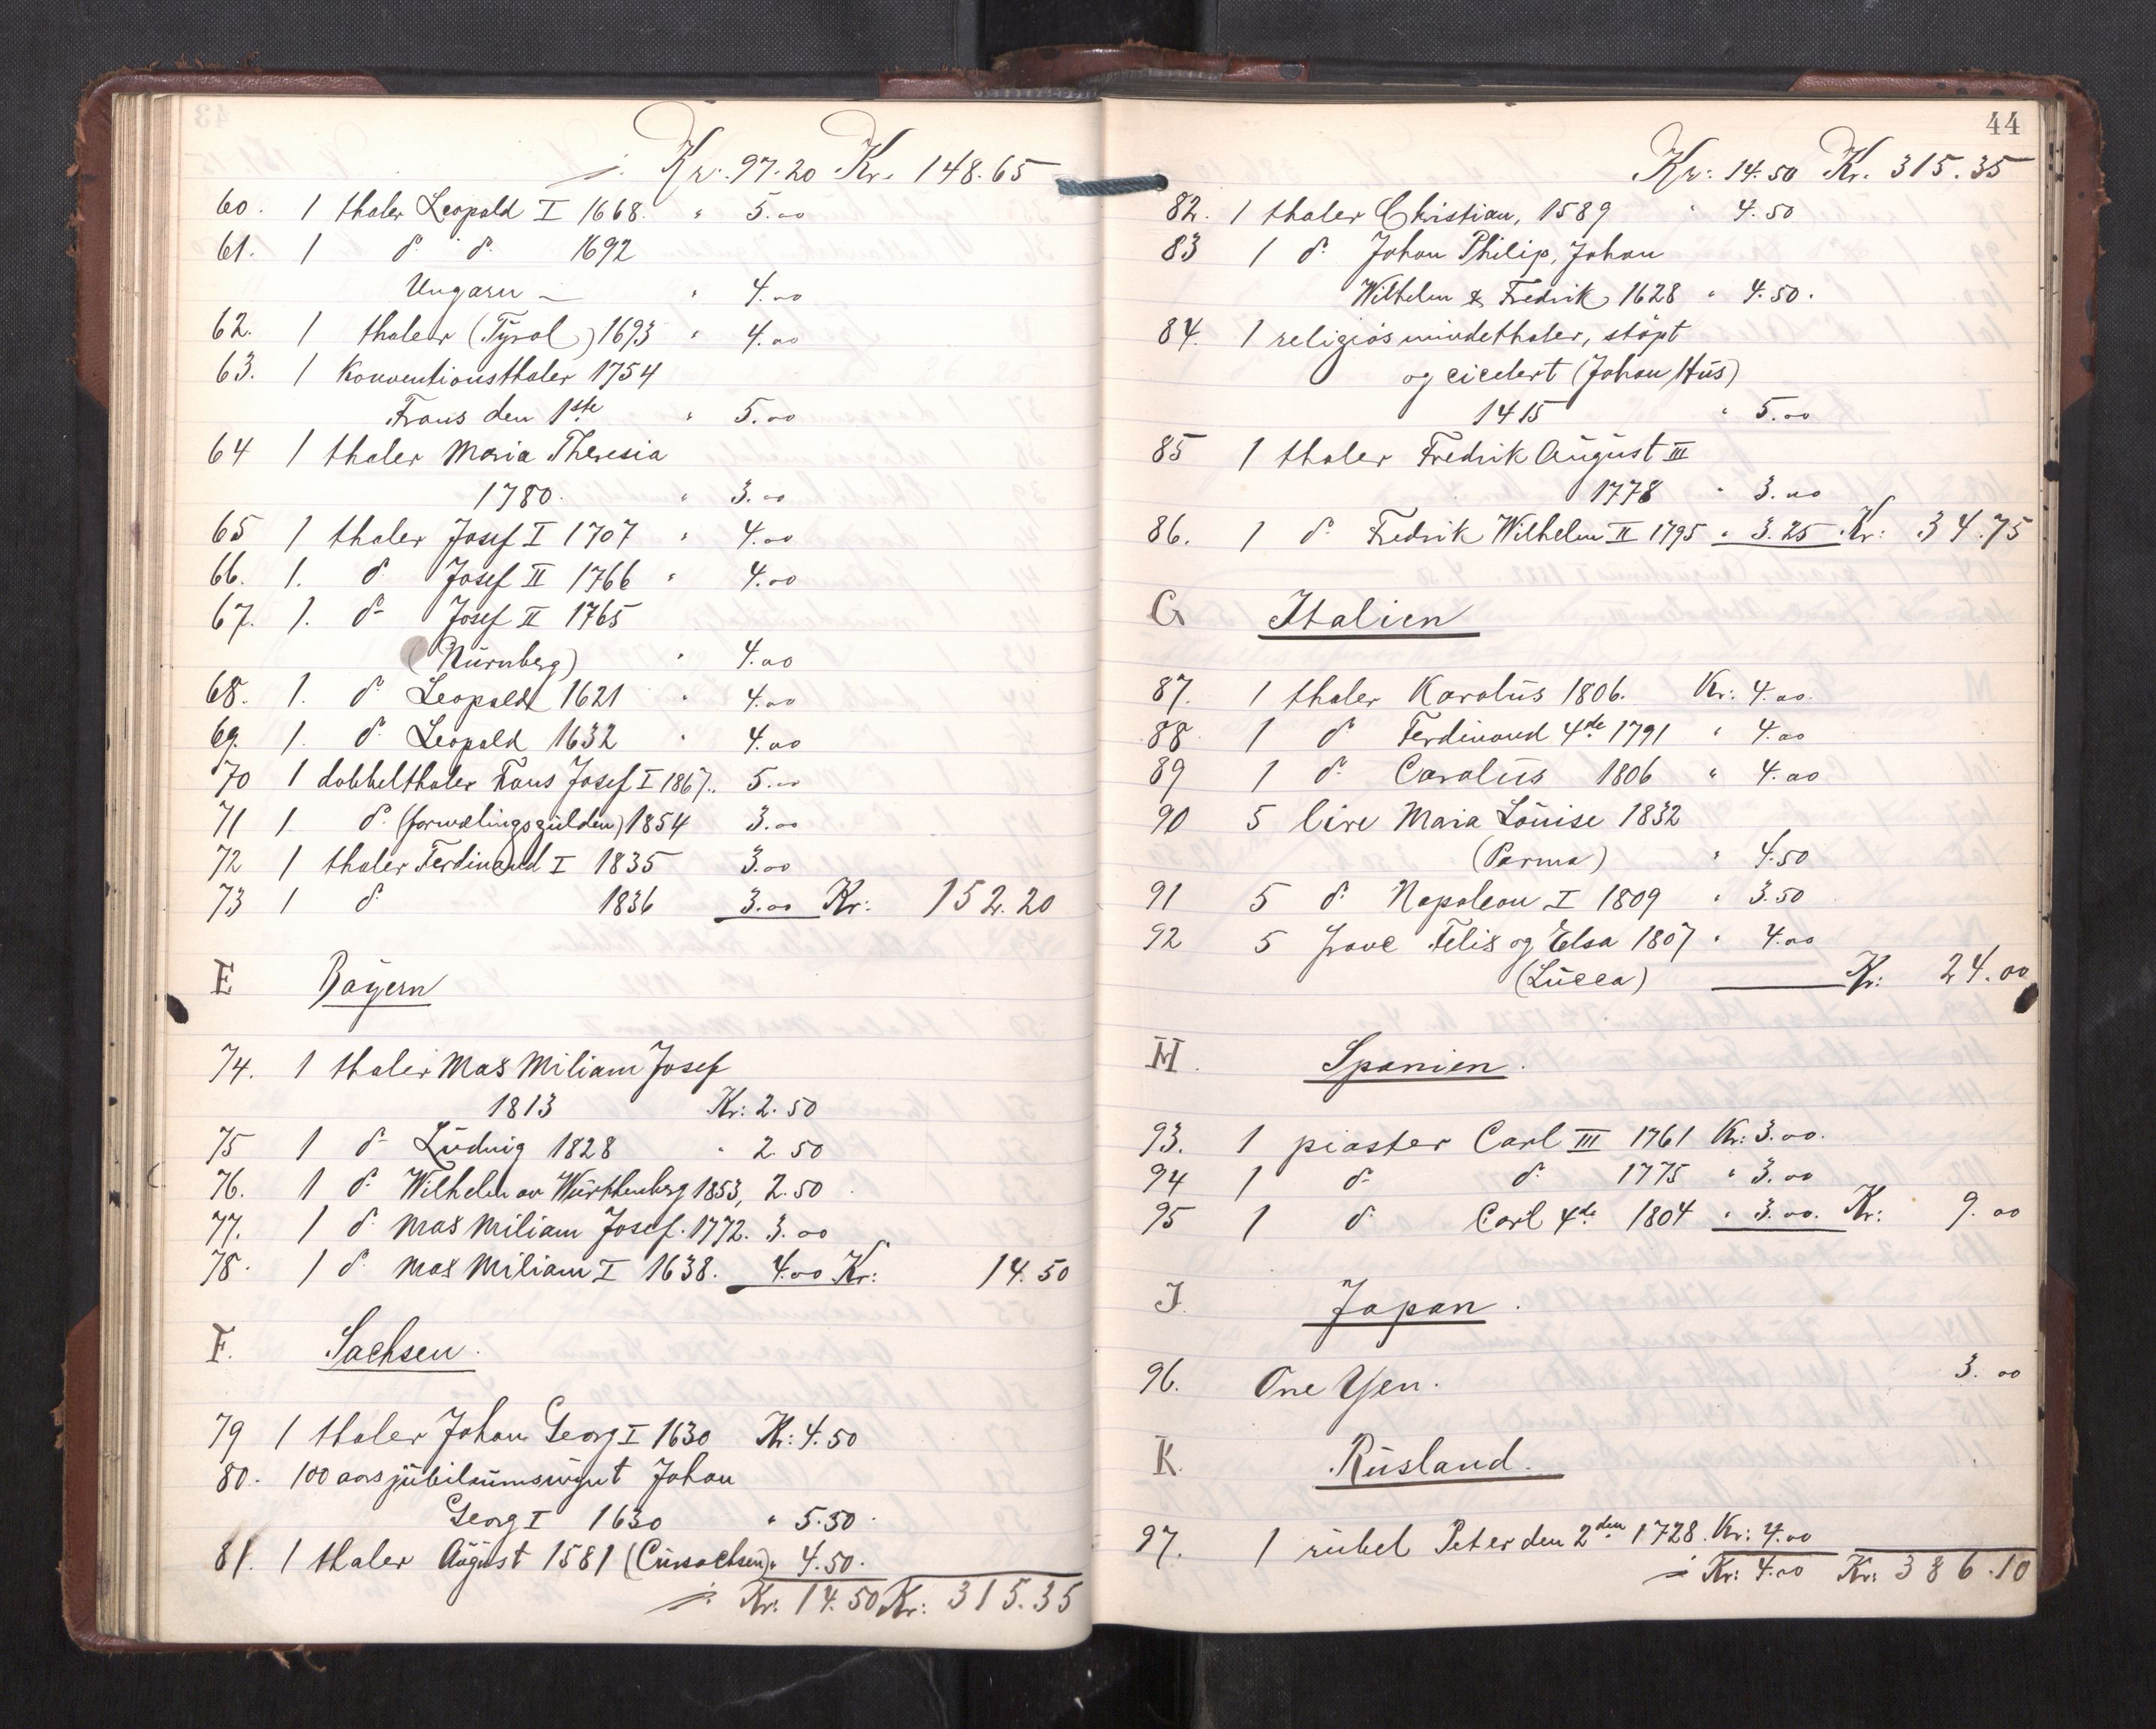 ÷ Kr. 97.20 Kr. 148.65
60. 1 thaler Leopold I 1668. " 5.00
61. 1 do do 1692
Ungarn — " 4.00
62. 1 thaler (Tyrol) 1693 " 4.00
63. 1 Konventionsthaler 1754
Frans den 1ste " 5.00
64 1 thaler Maria Theresia
1780. " 3.00
65 1 thaler Josef I 1707 " 4.00
66. 1. do Josef II 1766 " 4.00
67. 1. do Josef II 1765
(Nürnberg) " 4.00
68. 1. do Leopold 1621 " 4.00
69. 1. do Leopold 1632 " 4.00
70 1 dobbelthaler Frans Josef I 1867.. 5.00
71 1 do (formælingsgülden) 1854 3.00
72 1 thaler Ferdinand I 1835 3.00
73 1 do 1836 3.00 Kr: 152.20
E Bayern
74. 1 thaler Max Miliam Josef
1813 Kr: 2.50
75 1 do Ludvig 1828 " 2.50
76. 1 do Wilhelm av Würthenberg 1853, 2.50
77. 1 do Max Miliam Josef. 1772. 3.00
78. 1 do Max Miliam I 1638. 4.00 Kr: 14.50
F. Sachsen.
79 1 thaler Johan Georg I 1630 Kr: 4.50
80. 100 aars jubilæumsmynt Johan
Georg I 1630 " 5.50.
81. 1 thaler August 1581 (Cursachsen) " 4.50.
÷ Kr. 14.50 Kr: 315.35
44
Kr: 14.50 Kr. 315.35
82. 1 thaler Christian, 1589 " 4.50
83 1 do Johan Philip, Johan
Wilhelm & Fredrik 1628 " 4.50.
84. 1 religiös mindethaler, stöpt
og cicelert (Johan Hus)
1415 " 5.00
85 1 thaler Fredrik August III
1778 " 3.00
86. 1 do Fredrik Wilhelm II 1795 " 3.25 Kr: 34.75
G Italien
87. 1 thaler Karolus 1806. Kr: 4.00.
88 1 do Ferdinand 4de 1791 " 4.00
89 1 do Carolus 1806 " 4.00
90 5 lire Maria Louise 1832
(Parma) " 4.50
91 5 do Napoleon I 1809 " 3.50
92 5 franc Felix og Elsa 1807 " 4.00
(Lucca) Kr: 24.00
H. Spanien.
93. 1 piaster Carl III 1761 Kr: 3.00.
94 1 do do 1775 " 3.00
95 1 do Carl 4de 1804 " 3.00. Kr: 9.00
J. Japan.
96. One Yen. 3.00
K. Rusland.
97. 1 rubel Peter den 2den 1728. Kr: 4.00
÷ Kr: 4.00 Kr: 386.10